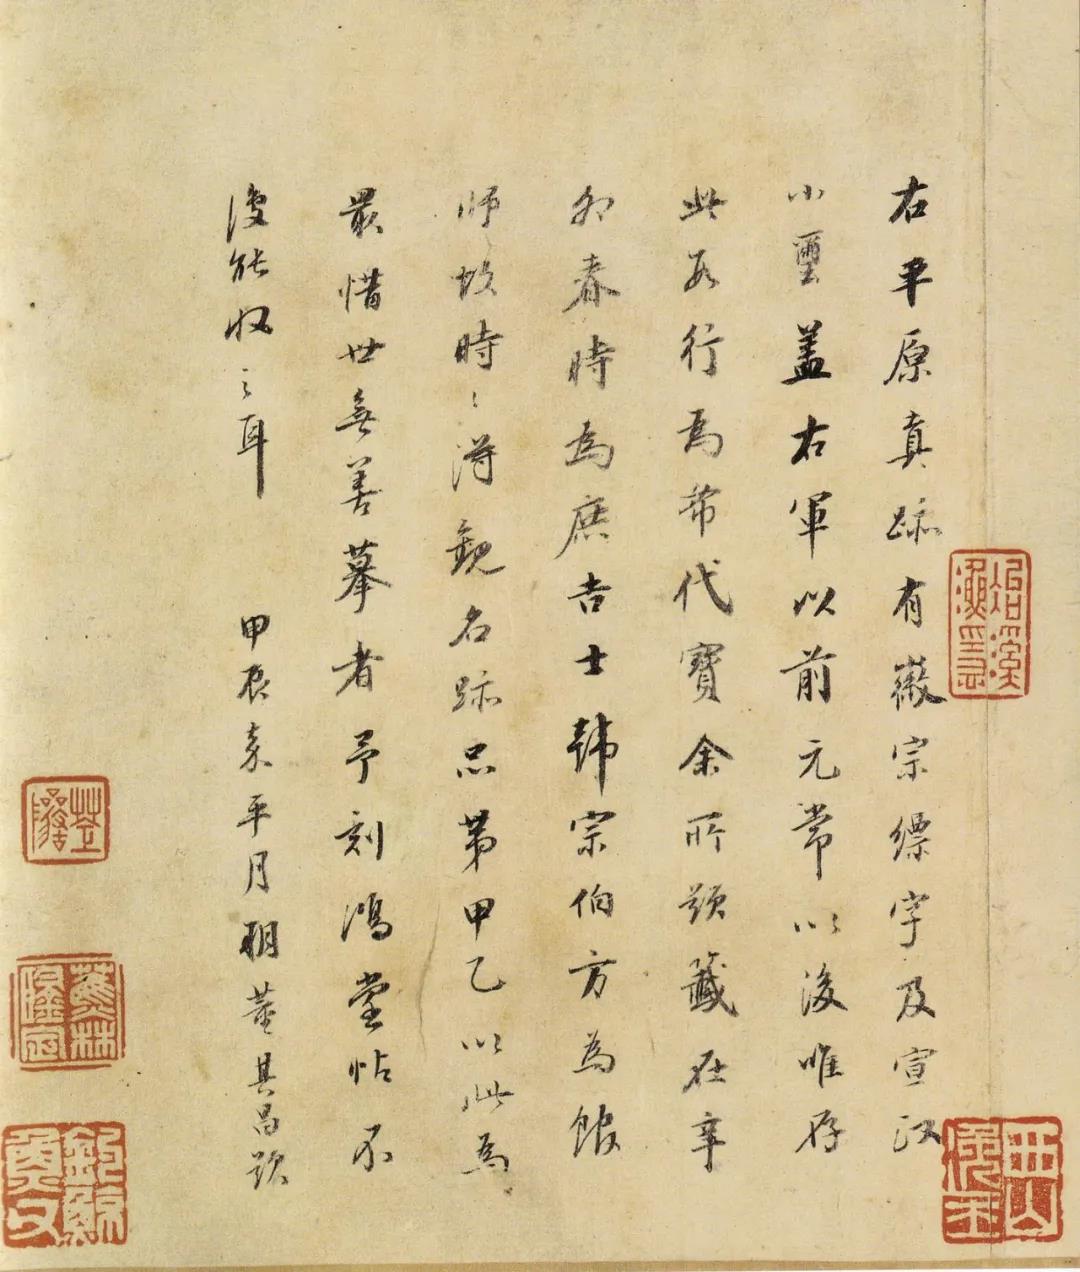 右平原真跡有徽宗縹字及宣政
小璽蓋右軍以前元常以後唯存
此數行為希代寶余所題籤在辛
卯春時為庶吉士韓宗伯方為館
師故時〻得觀名跡品第甲乙以此為
最惜世無善摹者予刻鴻堂帖不
復能收之耳 甲辰嘉平月朔董其昌題
冶溪漁隱